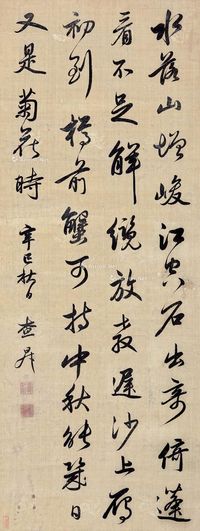 水落山增峻江空石出奇倚蓬
看不足解纜放教遲沙上雁
初到樽前蟹可持中秋能幾日
又是菊花時 辛巳秋日 查昇